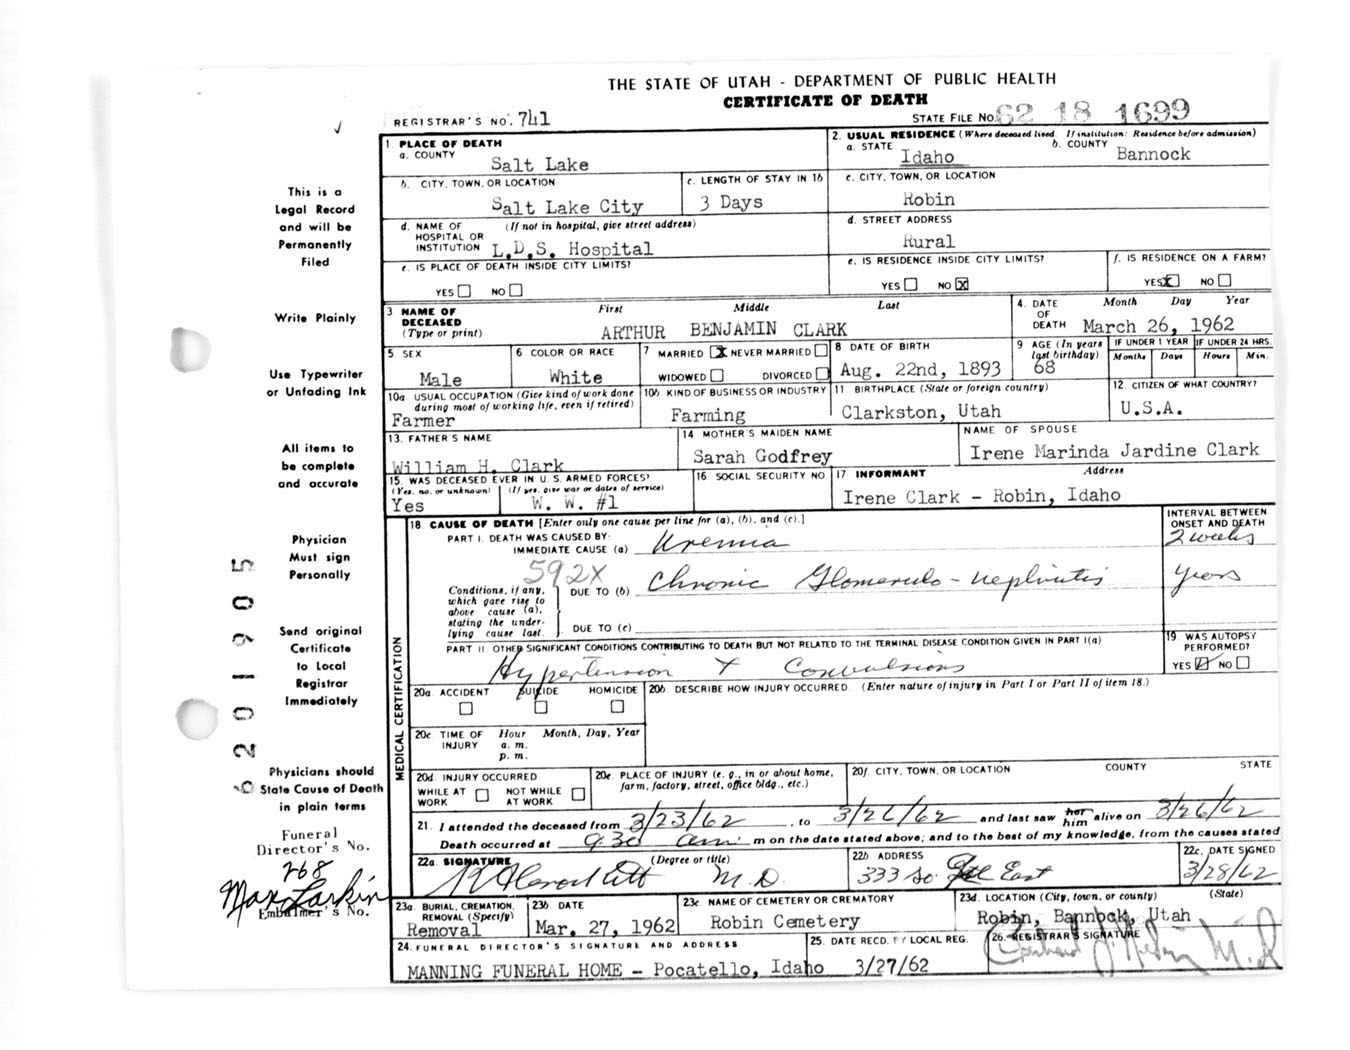 THE STATE OF UTAH - DEPARTMENT OF PUBLIC HEALTH
CERTIFICATE OF DEATH
REGISTRAR'S NO. 741
STATE FILE NO. 62 18 1699
1. PLACE OF DEATH
a. COUNTY
Salt Lake
2. USUAL RESIDENCE (Where deceased lived. If institution: Residence before admission)
a. STATE Idaho b. COUNTY Bannock
b. CITY, TOWN, OR LOCATION
Salt Lake City
c. LENGTH OF STAY IN 1b
3 Days
c. CITY, TOWN, OR LOCATION
Robin
d. NAME OF HOSPITAL OR INSTITUTION (If not in hospital, give street address)
L.D.S. Hospital
d. STREET ADDRESS
Rural
e. IS PLACE OF DEATH INSIDE CITY LIMITS?
YES NO
e. IS RESIDENCE INSIDE CITY LIMITS?
YES NO X
f. IS RESIDENCE ON A FARM?
YES X NO
3 NAME OF DECEASED (Type or print)
First Middle Last
ARTHUR BENJAMIN CLARK
4. DATE OF DEATH Month Day Year
March 26, 1962
5 SEX
Male
6 COLOR OR RACE
White
7 MARRIED X NEVER MARRIED
WIDOWED DIVORCED
8 DATE OF BIRTH
Aug. 22nd, 1893
9 AGE (In years last birthday)
68
IF UNDER 1 YEAR
Months Days
IF UNDER 24 HRS.
Hours Min.
10a. USUAL OCCUPATION (Give kind of work done during most of working life, even if retired)
Farmer
10b. KIND OF BUSINESS OR INDUSTRY
Farming
11 BIRTHPLACE (State or foreign country)
Clarkston, Utah
12 CITIZEN OF WHAT COUNTRY?
U.S.A.
13. FATHER'S NAME
William H. Clark
14 MOTHER'S MAIDEN NAME
Sarah Godfrey
NAME OF SPOUSE
Irene Marinda Jardine Clark
15. WAS DECEASED EVER IN U.S. ARMED FORCES?
(Yes, no, or unknown) (If yes, give war or dates of service)
Yes W. W. #1
16 SOCIAL SECURITY NO
17 INFORMANT Address
Irene Clark - Robin, Idaho
MEDICAL CERTIFICATION
18. CAUSE OF DEATH [Enter only one cause per line for (a), (b), and (c).]
INTERVAL BETWEEN ONSET AND DEATH
PART I. DEATH WAS CAUSED BY:
IMMEDIATE CAUSE (a) Uremia 2 weeks
592X
Conditions, if any, which gave rise to above cause (a), stating the underlying cause last.
DUE TO (b) Chronic Glomerulo-nephritis years
DUE TO (c)
PART II. OTHER SIGNIFICANT CONDITIONS CONTRIBUTING TO DEATH BUT NOT RELATED TO THE TERMINAL DISEASE CONDITION GIVEN IN PART I(a)
Hypertension + Convulsions
19. WAS AUTOPSY PERFORMED?
YES NO
20a. ACCIDENT SUICIDE HOMICIDE
20b. DESCRIBE HOW INJURY OCCURRED. (Enter nature of injury in Part I or Part II of item 18.)
20c TIME OF INJURY Hour Month, Day, Year
a. m.
p. m.
20d. INJURY OCCURRED
WHILE AT WORK NOT WHILE AT WORK
20e. PLACE OF INJURY (e. g., in or about home, farm, factory, street, office bldg., etc.)
20f. CITY, TOWN, OR LOCATION COUNTY STATE
21. I attended the deceased from 3/23/62, to 3/26/62 and last saw her him alive on 3/26/62
Death occurred at 9:30 am m on the date stated above; and to the best of my knowledge, from the causes stated
22a. SIGNATURE (Degree or title)
M.D.
22b ADDRESS
333 So. East
22c. DATE SIGNED
3/28/62
23a. BURIAL, CREMATION, REMOVAL (Specify)
Removal
23b. DATE
Mar. 27, 1962
23c. NAME OF CEMETERY OR CREMATORY
Robin Cemetery
23d. LOCATION (City, town, or county) (State)
Robin, Bannock, Utah
24. FUNERAL DIRECTOR'S SIGNATURE AND ADDRESS
MANNING FUNERAL HOME - Pocatello, Idaho
25. DATE RECD. BY LOCAL REG.
3/27/62
26. REGISTRAR'S SIGNATURE
M.D.
This is a
Legal Record
and will be
Permanently
Filed
Write Plainly
Use Typewriter
or Unfading Ink
All items to
be complete
and accurate
Physician
Must sign
Personally
Send original
Certificate
to Local
Registrar
Immediately
Physicians should
State Cause of Death
in plain terms
Funeral
Director's No.
268
Max Larkin
Embalmer's No.
6201905